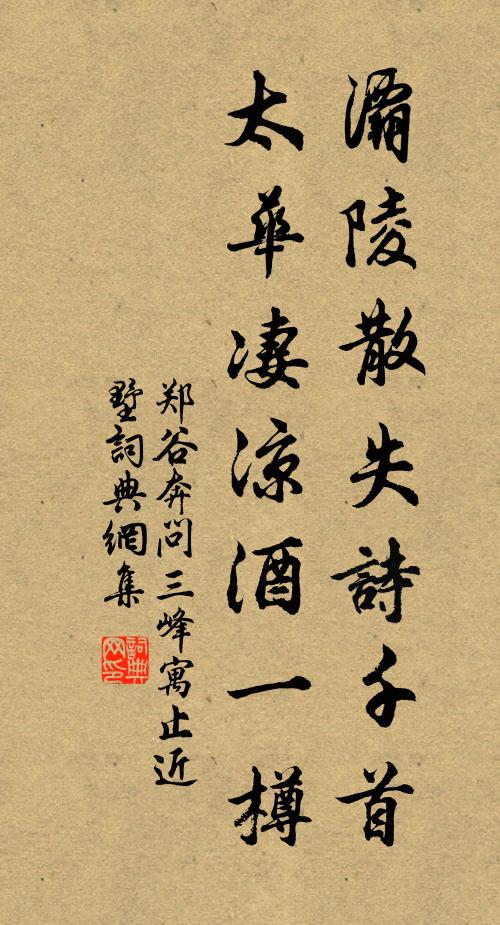 灞陵散失詩千首
太華凄涼酒一樽
郑谷奔問三峰寓止近
墅詞典網集
詞典
网印